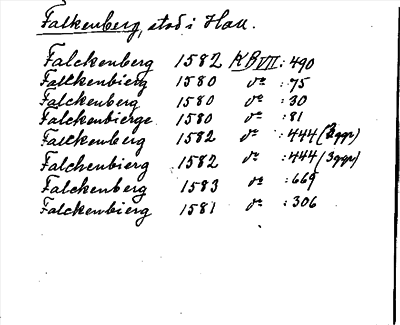 Falkenberg, stad i Hall.
Falckenberg 1582 KB VII : 490
Falckenbierg 1580 do : 75
Falckenberg 1580 do : 30
Falckenbierge 1580 do : 81
Falckenberg 1582 do : 444 (2ggr)
Falchenbierg 1582 do : 444 (3ggr)
Falckenberg 1583 do : 669
Falckenbierg 1581 do : 306